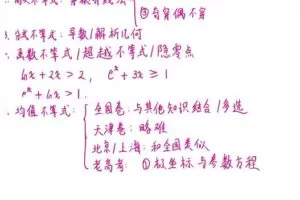 ③奇穿偶不穿
3. 分式不等式：导数/解析几何
函数不等式/超越不等式/隐零点
lnx+2x>2, eˣ+3x≥1
+lnx>1.
均值不等式：
全国卷：与其他知识结合/多选
天津卷：略难
北京/上海：和全国类似
老高考：①极坐标与参数方程